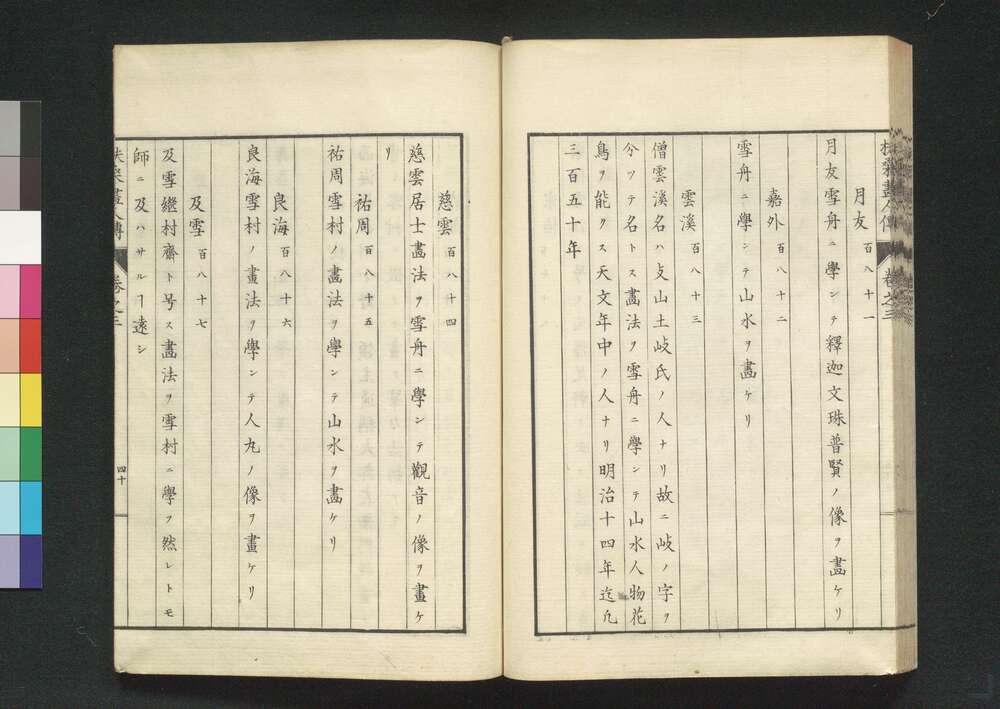 月友 百八十一
月友雪舟ニ學ンテ釋迦文珠普賢ノ像ヲ畵ケリ
嘉外 百八十二
雪舟ニ學ンテ山水ヲ畵ケリ
雲溪 百八十三
僧雲溪名ハ攴山土岐氏ノ人ナリ故ニ岐ノ字ヲ
分ツテ名トス畵法ヲ雪舟ニ學ンテ山水人物花
鳥ヲ能クス天文年中ノ人ナリ明治十四年迄凢
三百五十年
慈雲 百八十四
慈雲居士畵法ヲ雪舟ニ學ンテ觀音ノ像ヲ畫ケ
リ
祐周 百八十五
祐周雪村ノ畵法ヲ學ンテ山水ヲ畵ケリ
良海 百八十六
良海雪村ノ畫法ヲ學ンテ人丸ノ像ヲ畫ケリ
及雪 百八十七
及雪継村齋ト号ス畵法ヲ雪村ニ學フ然レトモ
師ニ及ハサルヿ遠シ
畫人傳 卷之三
四十